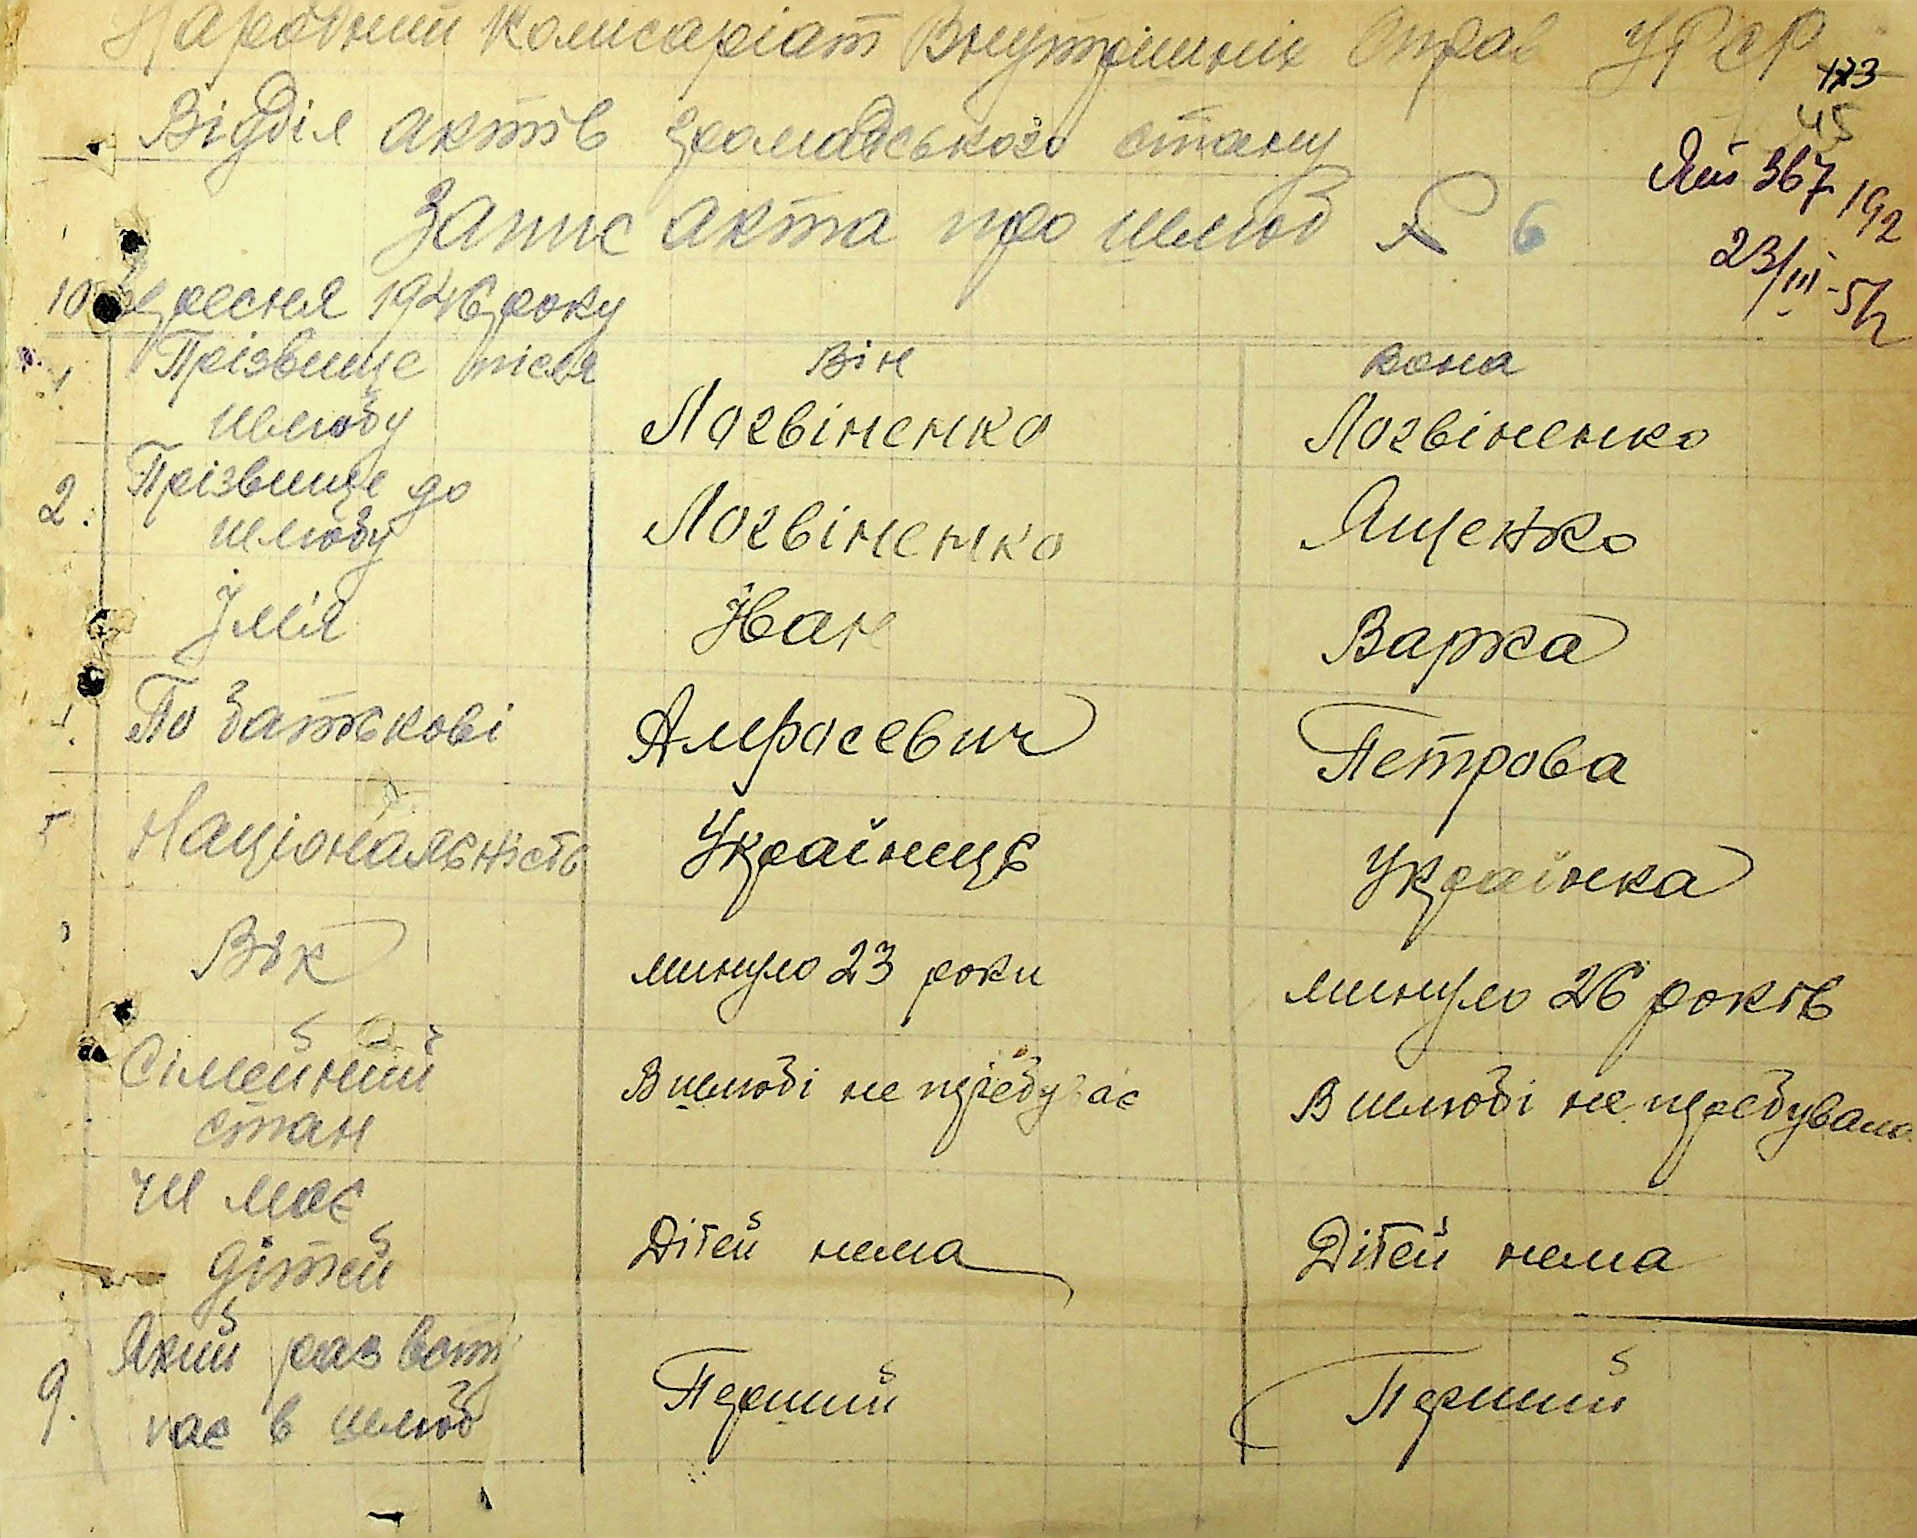 Народний Комісаріат Внутрішніх Справ УРСР
173
45
Відділ актів громадського стану
367 192
Запис акта про шлюб № 6
23/III-51
10 Вересня 1946 року
1 Прізвище після шлюбу Він Вона
Логвіненко Логвіненко
2. Прізвище до шлюбу Логвіненко Ященко
Імія Іван Варка
По батькові Амросевич Петрова
5 Національність Українець Українка
Вік минуло 23 роки минуло 26 років
Сімейний стан В шлюбі не перебуває В шлюбі не перебувала
чи має дітей Дітей нема Дітей нема
9. Який раз вступає в шлюб Перший Перший